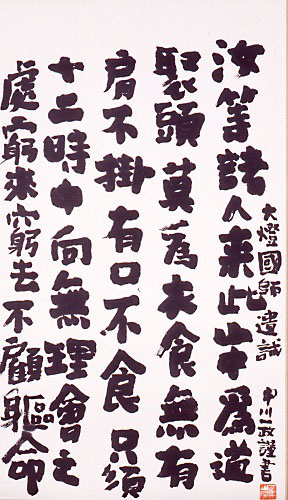 大燈國師遺誡 中川一政謹書
汝等諸人来此山中爲道
聚頭莫爲衣食無有
肩不掛有口不食只須
十二時中向無理會之
處窮来窮去不顧軀命